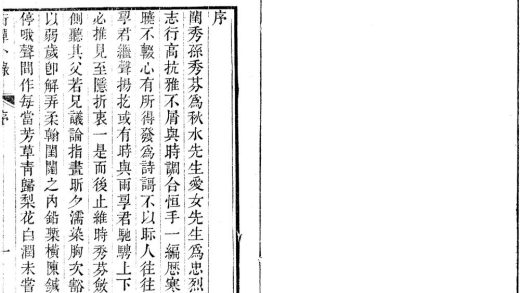 序
閨秀孫秀芬爲秋水先生愛女先生爲忠烈
志行高抗雅不屑與時調合恒手一編歷寒
曉不輟心有所得發爲詩謌不以眎人往往
孚君繼聲揚扢或有時與雨孚君馳騁上下
必推見至隱折衷一是而後止維時秀芬斂
側聽其父若兄議論指畫昕夕濡染胸次豁
以弱歲卽解弄柔翰閨闥之內鉛槧橫陳鍼
停哦聲間作每當芳草靑歸梨花白潤未嘗
序 一